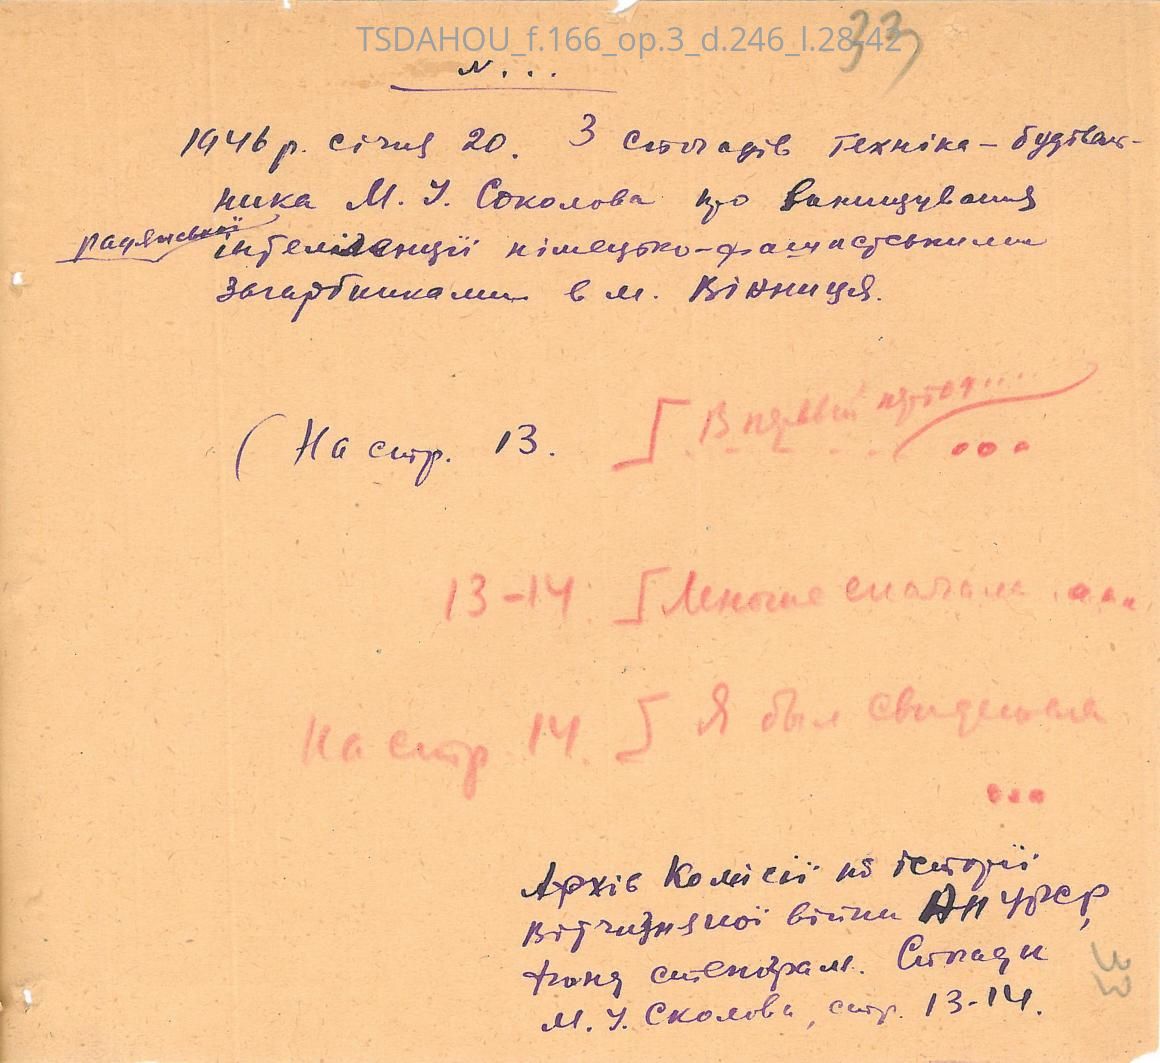 TSDAHOU_f.166_op.3_d.246_l.28-42
33
N...
1946 р. січня 20. З спогадів техніка-будівель-
ника М. І. Соколова про винищування
радянської
інтелігенції німецько-фашистськими
загарбниками в м. Вінниця.
(На стр. 13. [ В первый период....
...
13-14. [ Многие сначала ....
На стр. 14. [ Я был свидетелем
...
Архів Комісії по історії
Вітчизняної війни АН УРСР,
Фонд стенограм. Спогади
М. І. Сколова, стр. 13-14.
33